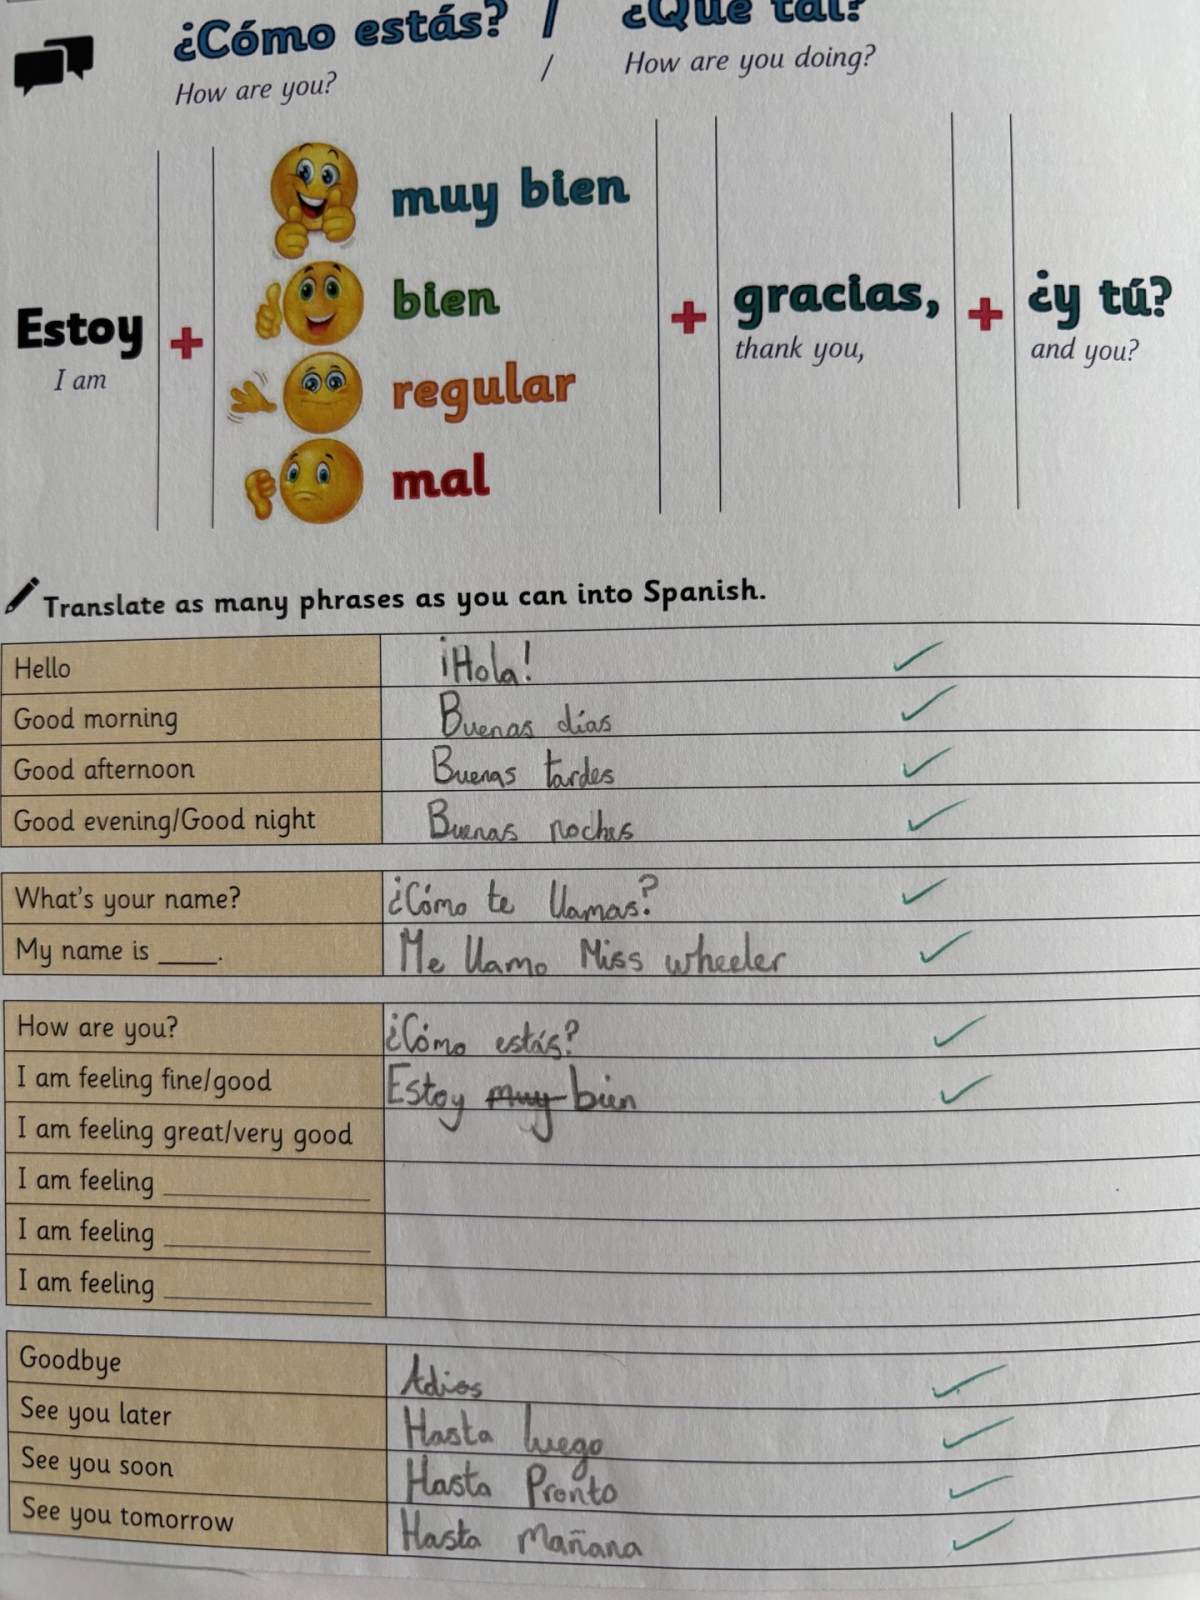 ¿Cómo estás? / ¿Qué tal?
How are you? / How are you doing?
muy bien
bien
Estoy + + gracias, + ¿y tú?
I am thank you, and you?
regular
mal
Translate as many phrases as you can into Spanish.
Hello ¡Hola!
Good morning Buenas días
Good afternoon Buenas tardes
Good evening/Good night Buenas noches
What's your name? ¿Cómo te llamas?
My name is _____. Me llamo Miss wheeler
How are you? ¿Cómo estás?
I am feeling fine/good Estoy muy bien
I am feeling great/very good
I am feeling _____
I am feeling _____
I am feeling _____
Goodbye Adios
See you later Hasta luego
See you soon Hasta Pronto
See you tomorrow Hasta Mañana